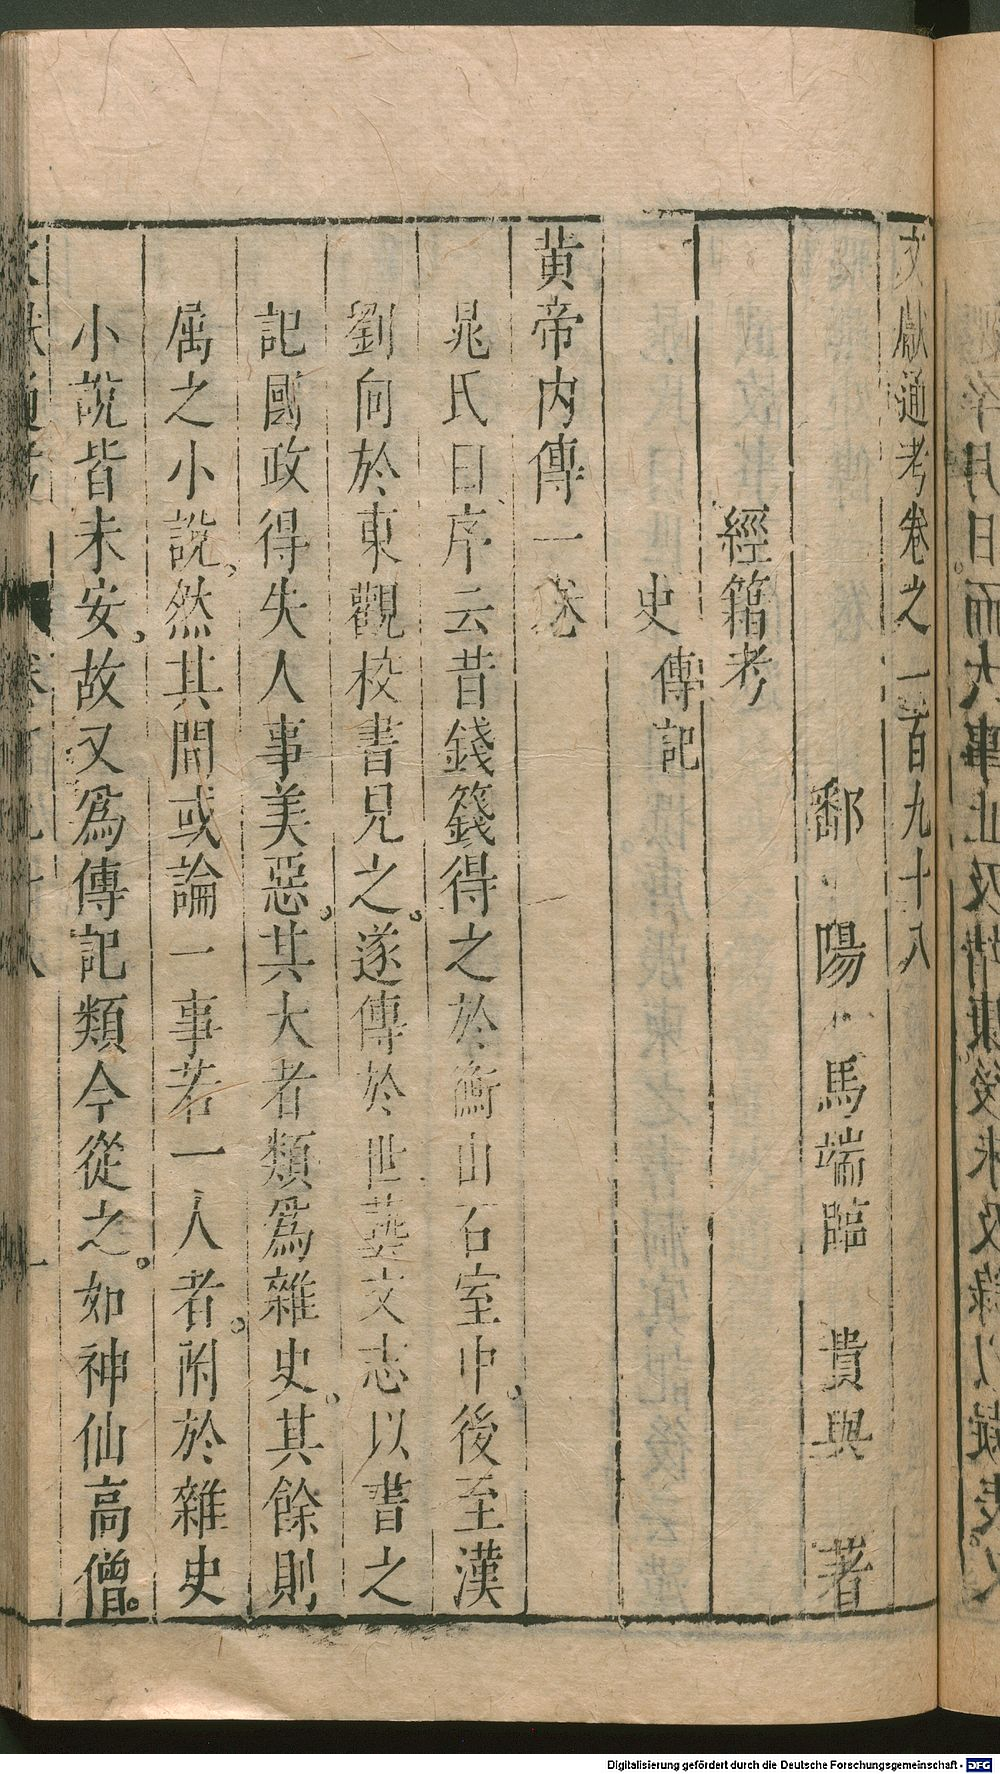 文獻通考卷之一百九十八
鄱陽 馬端臨 貴與 著
經籍考
史 傳記
黃帝内傳一卷
晁氏曰序云昔錢籛得之於衡山石室中後至漢
劉向於東觀校書見之遂傳於世藝文志以書之
記國政得失人事美惡其大者類爲雜史其餘則
屬之小說然其間或論一事若一人者附於雜史
小說皆未安故又爲傳記類今從之如神仙高僧
Digitalisierung gefördert durch die Deutsche Forschungsgemeinschaft - DFG